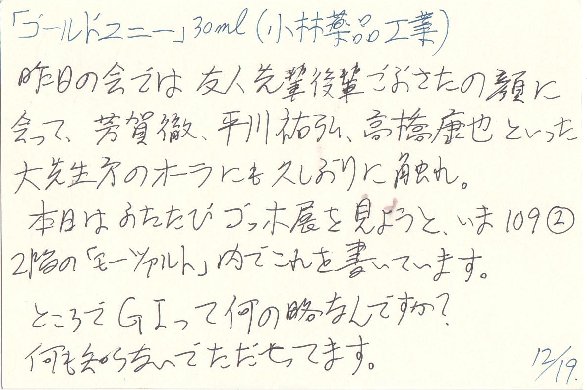 「ゴールドユニー」30ml(小林薬品工業)
昨日の会では 友人先輩後輩ごぶさたの顔に
会って、芳賀徹、平川祐弘、高橋康也といった
大先生方のオーラにも久しぶりに触れ。
本日はふたたびゴッホ展を見ようと、いま109②
2階の「モーツァルト」内でこれを書いています。
ところでGIって何の略なんですか?
何も知らないでただやってます。
12/19.